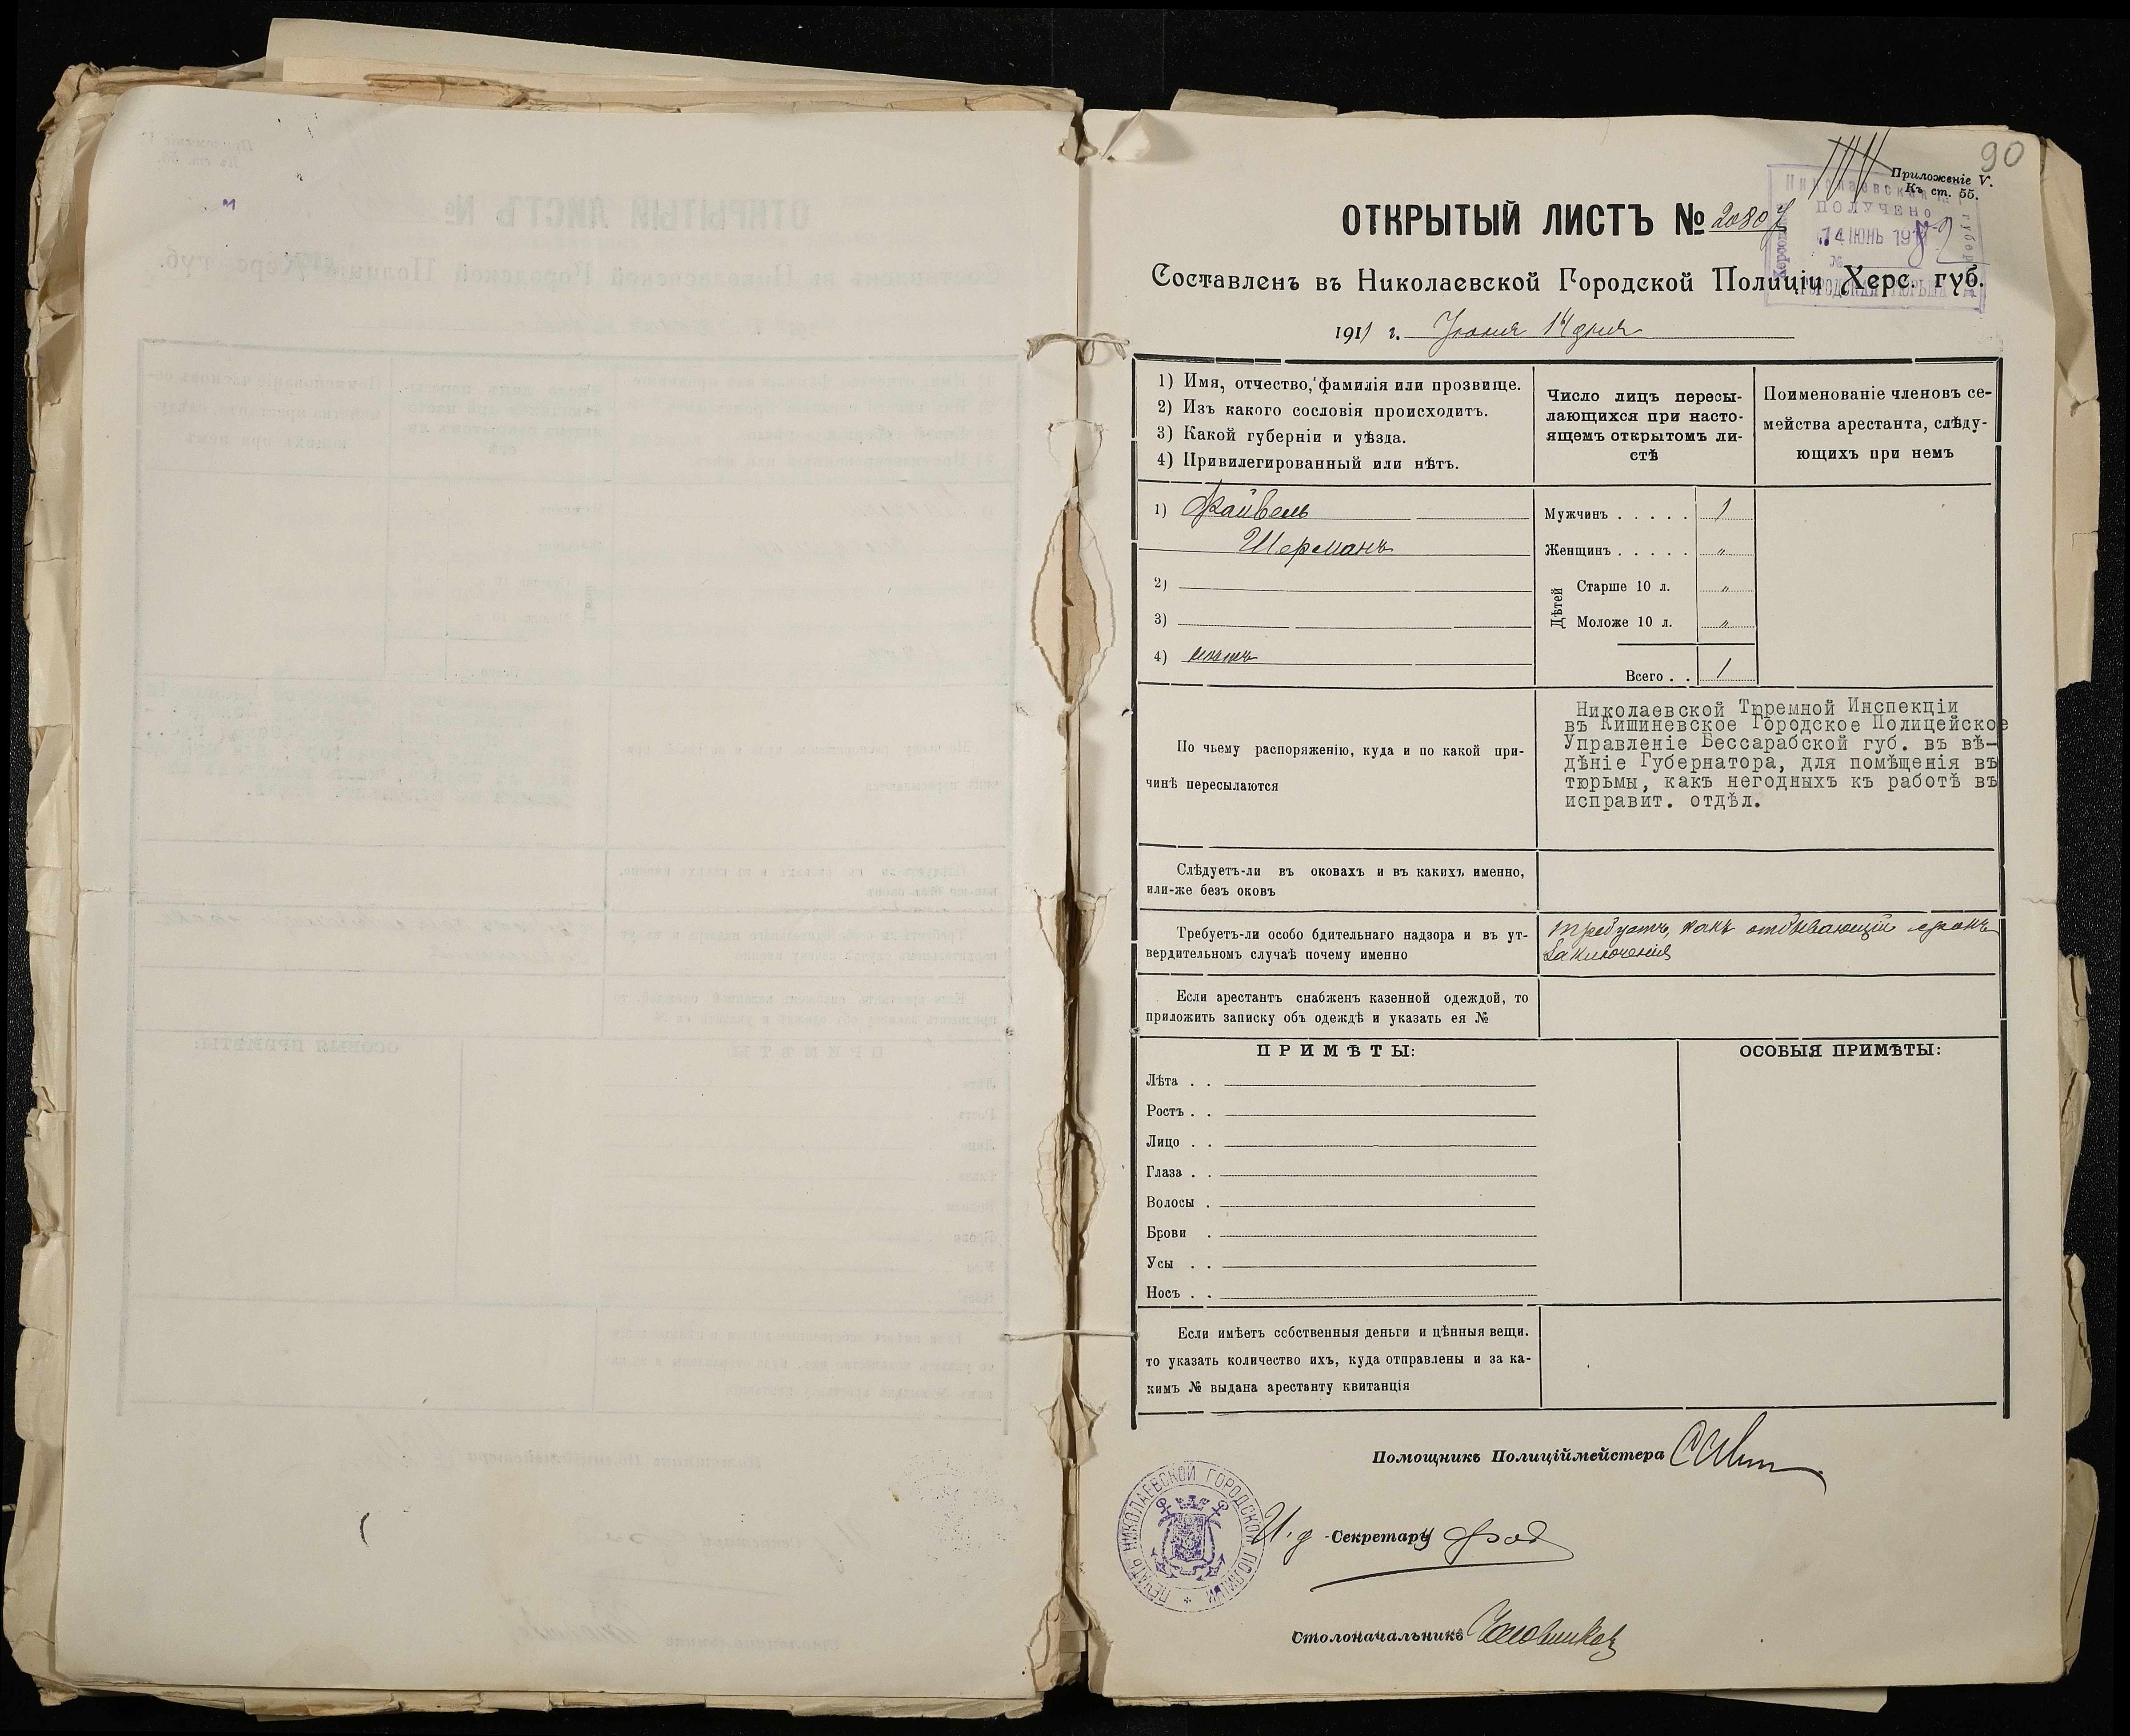 90
Приложеніе V.
Къ ст. 55.
ОТКРЫТЫЙ ЛИСТЪ № 20807
ПОЛУЧЕНО
14 ІЮНЬ 191
№
ГОРОДСКАЯ ТЮРЬМА
Составленъ въ Николаевской Городской Полиціи Херс. губ.
1911 г. Іюня 14 дня
1) Имя, отчество, фамилія или прозвище.
2) Изъ какого сословія происходитъ.
3) Какой губерніи и уѣзда.
4) Привилегированный или нѣтъ.
Число лицъ пересы-
лающихся при насто-
ящемъ открытомъ ли-
стѣ
Поименованіе членовъ се-
мейства арестанта, слѣду-
ющихъ при немъ
1) Файвель
Шерманъ
2)
3)
4)
Мужчинъ . . . . . 1
Женщинъ . . . . . „
Дѣтей
Старше 10 л. „
Моложе 10 л. „
Всего . . 1
По чьему распоряженію, куда и по какой при-
чинѣ пересылаются
Николаевской Тюремной Инспекціи
въ Кишиневское Городское Полицейское
Управленіе Бессарабской губ. въ вѣ-
дѣніе Губернатора, для помѣщенія въ
тюрьмы, какъ негодныхъ къ работѣ въ
исправит. отдѣл.
Слѣдуетъ-ли въ оковахъ и въ какихъ именно,
или-же безъ оковъ
Требуетъ-ли особо бдительнаго надзора и въ ут-
вердительномъ случаѣ почему именно
требуетъ, какъ отбывающій срокъ
заключенія
Если арестантъ снабженъ казенной одеждой, то
приложить записку объ одеждѣ и указать ея №
ПРИМѢТЫ:
Лѣта . .
Ростъ . .
Лицо . .
Глаза . .
Волосы .
Брови .
Усы . .
Носъ . .
ОСОБЫЯ ПРИМѢТЫ:
Если имѣетъ собственныя деньги и цѣнныя вещи.
то указать количество ихъ, куда отправлены и за ка-
кимъ № выдана арестанту квитанція
Помощникъ Полиціймейстера
И. д. Секретаря
Столоначальникъ
ПЕЧАТЬ НИКОЛАЕВСКОЙ ГОРОДСКОЙ ПОЛИЦІИ